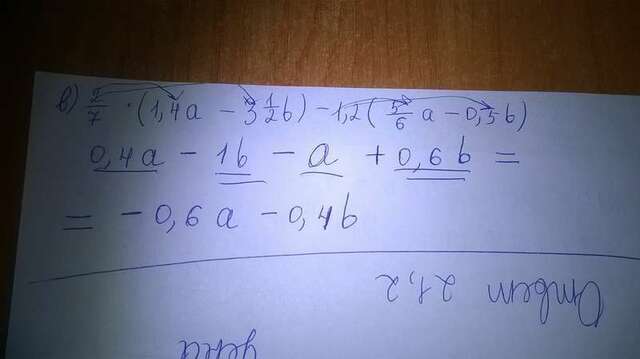 в) 2/7 · (1,4a - 3 1/2 b) - 1,2 (5/6 a - 0,5b)
0,4a - 1b - a + 0,6b =
= - 0,6a - 0,4b
Ответ 21,2
дена